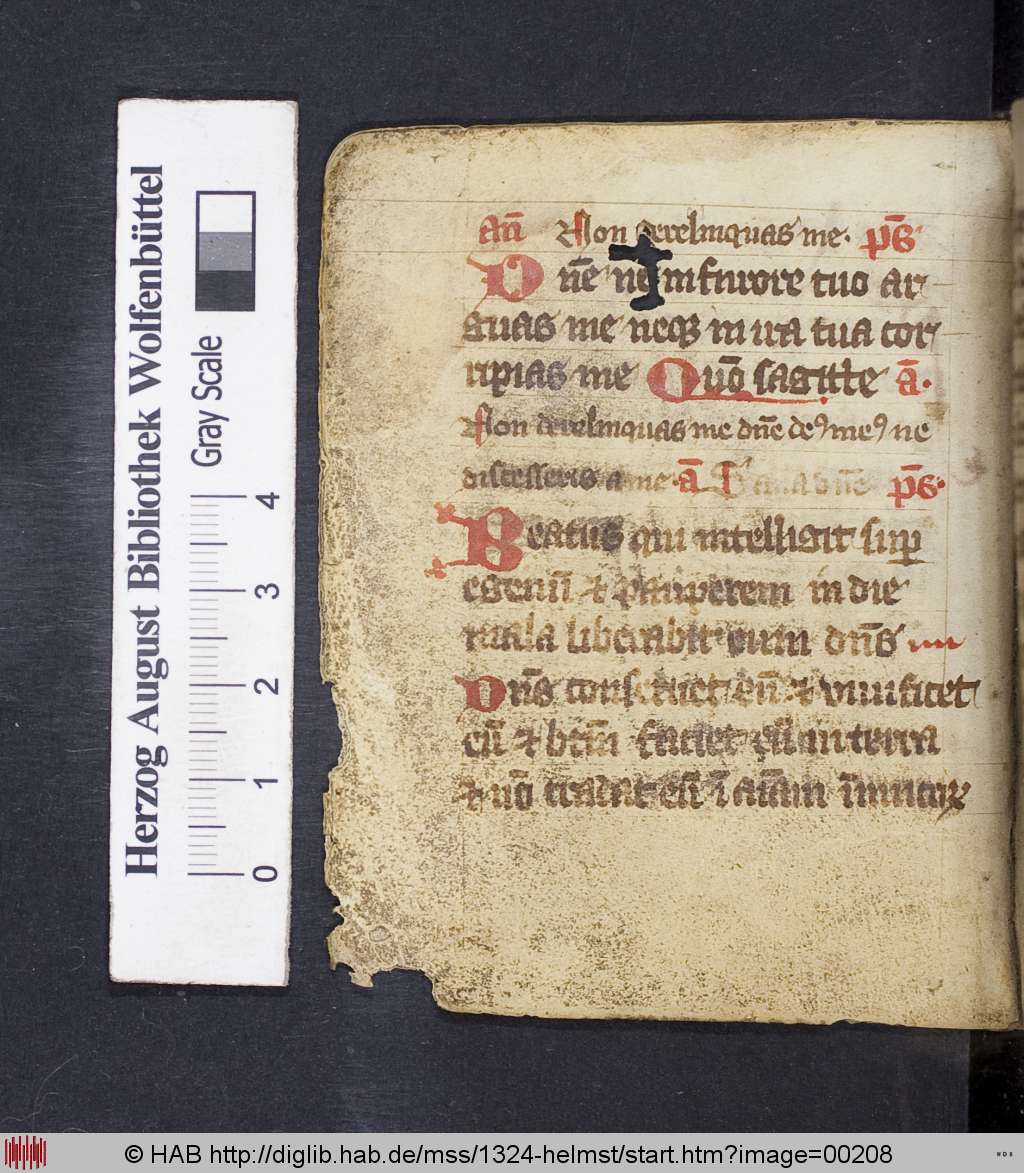 Herzog August Bibliothek Wolfenbüttel
Gray Scale
0 1 2 3 4
an̄ Non derelinquas me. ps̄
Dn̄e ne in furore tuo ar
guas me neqꝫ in ira tua cor
ripias me Quō sagitte ā.
Non derelinquas me dn̄e deꝰ meꝰ ne
discesseris a me. ā Sana dn̄e ps̄.
Beatus qui intelligit suꝑ
egenū ⁊ pauperem in die
mala liberabit eum dn̄s
Dn̄s conseruet eū ⁊ viuificet
eū ⁊ btm̄ faciet eū in terra
⁊ nō tradat eū ī aīam īimicoꝝ
© HAB http://diglib.hab.de/mss/1324-helmst/start.htm?image=00208